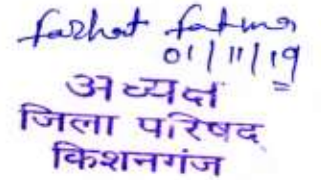 farhat fatma
01/11/19
अध्यक्ष
जिला परिषद
किशनगंज